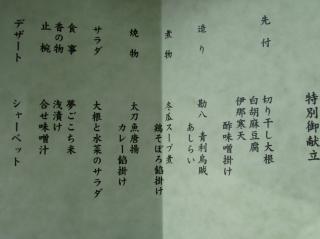 特別御献立
先付
切り干し大根
白胡麻豆腐
伊那寒天
酢味噌掛け
造り
勘八 青利烏賊
あしらい
煮物
冬瓜スープ煮
鶏そぼろ餡掛け
焼物
太刀魚唐揚
カレー餡掛け
サラダ
大根と水菜のサラダ
食事
夢ごこち米
香の物
浅漬け
止椀
合せ味噌汁
デザート
シャーベット